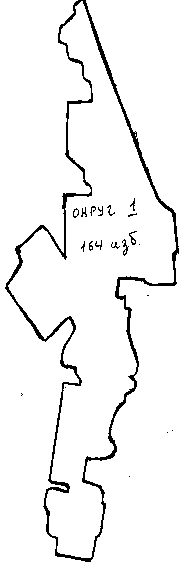 ОКРУГ 1
164 изб.